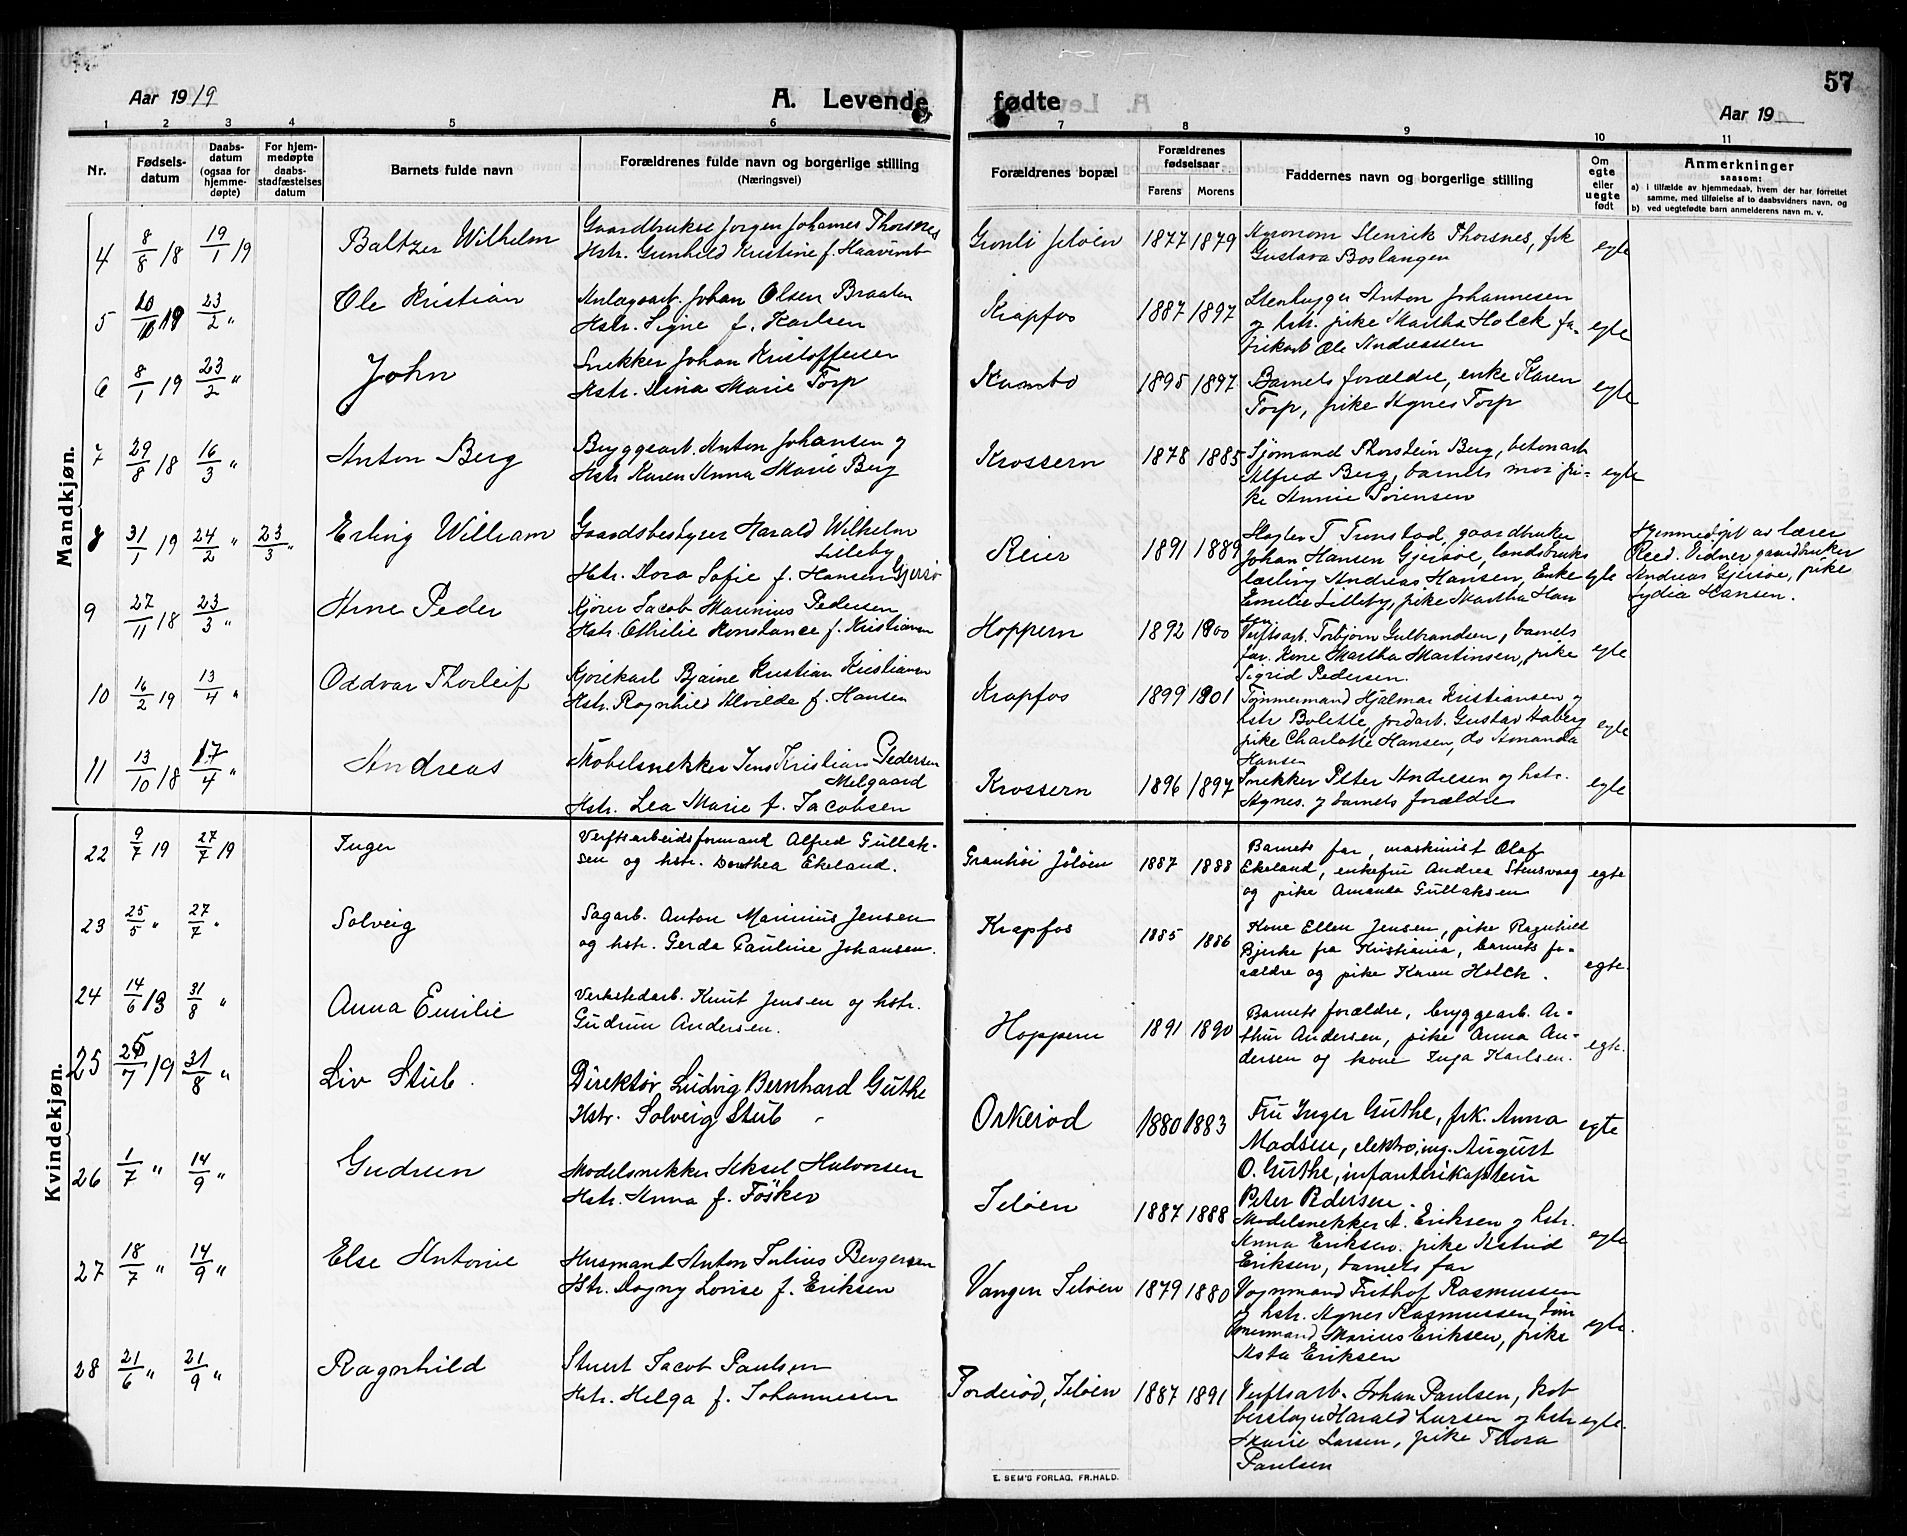 57
Aar 1919
A. Levende fødte
Aar 19
1 2 3 4 5 6 7 8 9 10 11
Nr.
Fødsels-
datum
Daabs-
datum
(ogsaa for
hjemme-
døpte)
For hjem-
medøpte
daabs-
stadfæstelses
datum
Barnets fulde navn
Forældrenes fulde navn og borgerlige stilling
(Næringsvei)
Forældrenes bopæl
Forældrenes
fødselsaar
Farens Morens
Faddernes navn og borgerlige stilling
Om
egte
eller
uegte
født
Anmerkninger
saasom:
a) i tilfælde av hjemmedaab, hvem der har forrettet
samme, med tilføielse af to daabsvidners navn, og
b) ved uegtefødte barn anmelderens navn m. v.
Mandkjøn.
4 8/8 18 19/1 19 Baltzer Wilhelm
Gaardbruker Jørgen Johannes Thorsnes
Hstr. Gunhild Kristine f.
Grønli Jeløen 1877 1879
Agronom Henrik Thorsnes, frk
Gustava Boslangen
egte
5 23/2 " Ole Kristian
Anlægsarb. Johan Olsen Braaten
Hstr. Signe f. Karlsen
Krapfos 1887 1897
Stenhugger Anton Johannesen
og hstr. pike Martha Holck fa-
brikarb Ole Andreassen
egte
6 8/1 19 23/2 " John
Snekker Johan Kristoffersen
Hstr. Dina Marie Torp
Kambo 1895 1897
Barnets forældre, enke Karen
Torp, pike Agnes Torp
egte
7 29/8 18 16/3 " Anton Berg
Bryggearb. Anton Johansen og
Hstr Karen Anna Marie Berg
Krossern 1878 1885
Sjømand Thorstein Berg, betonarb
Alfred Berg, barnets mor pi-
ke Annie Sørensen
egte
8 31/1 19 24/2 " 23/3 " Erling William
Gaardsbestyrer Harald Wilhelm
Lilleby
Hstr. Dora Sofie f. Hansen Gjersø
Reier 1891 1889
T. Tronstad, gaardbruker
Johan Hansen Gjersøe, landbruks
lærling Andreas Hansen, Enke
Emelie Lilleby, pike Martha Han
sen
egte
Hjemmedøpt av lærer
Reed. Vidner gaardbruker
Andreas Gjersøe, pike
Lydia Hansen.
9 27/11 18 23/3 " Arne Peder
Kjører Jacob Marinius Pedersen
Hstr. Othilie Konstance f. Kristiansen
Hoppern 1892 1900
Verftsarb. Torbjørn Gulbrandsen, barnets
far. Kone Martha Martinsen, pike
Sigrid Pedersen.
egte
10 16/2 19 13/4 " Oddvar Thorleif
Kjørekarl Bjarne Kristian Kristiansen
Hstr. Ragnhild Alvilde f. Hansen
Krapfos 1899 1901
Tømmermand Hjalmar Kristiansen og
hstr Bolette, jordarb. Gustav Aaberg
pike Charlotte Hansen, do Amanda
Hansen
egte
11 13/10 18 17/4 " Andreas
Møbelsnekker Jens Kristian Pedersen
Melgaard
Hstr. Lea Marie f. Jacobsen
Krossern 1896 1897
Snekker Peter Andresen og hstr.
Agnes. og barnets forældre
egte
Kvindekjøn.
22 9/7 19 27/7 19 Inger
Verftsarbeidsformand Alfred Gullak-
sen og hstr. Dorthea Ekeland.
Grankøi Jeløen 1887 1888
Barnets far, maskinist Olaf
Ekeland, enkefru Andrea Stensvaag
og pike Amanda Gullaksen
egte
23 25/5 " 27/7 " Solveig
Sagarb. Anton Marinius Jensen
og hstr. Gerda Pauline Johansen.
Krapfos 1885 1886
Kone Ellen Jensen, pike Ragnhild
Bjerke fra Kristiania, barnets fo-
rældre og pike Karen Holck.
egte.
24 14/6 19 31/8 " Anna Emilie
Verkstedarb. Knut Jensen og hstr.
Gudrun Andersen.
Hoppern 1891 1890
Barnets forældre, bryggearb. Ar-
thur Andersen, pike Anna An-
dersen og kone Inga Karlsen.
egte.
25 25/7 19 31/8 " Liv Stub.
Direktør Ludvig Bernhard Guthe
Hstr. Solveig Stub
Orkerød 1880 1883
Fru Inger Guthe, frk. Anna
Madsen, elektro.ing. August
O. Guthe, infanterikaptein
Peter Pedersen.
egte
26 1/7 " 14/9 " Gudrun
Modelsnekker Aksel Halvorsen
Hstr. Anna f. Fösker
Jeløen 1887 1888
Modelsnekker A. Eriksen og hstr.
Anna Eriksen. pike Astrid
Eriksen, barnets far
egte
27 18/7 " 14/9 " Else Antonie
Husmand Anton Julius Bergersen
Hstr. Dagny Lovise f. Eriksen
Vangen Jeløen 1879 1880
Vognmand Frithof Rasmussen
og hstr. Agnes Rasmussen, Tøm
mermand Marius Eriksen, pike
Asta Eriksen
egte.
28 21/6 " 21/9 " Ragnhild
Stuert Jacob Paulsen
Hstr. Helga f. Johannessen
Torderød, Jeløen 1887 1891
Verftsarb. Johan Paulsen, Kob
berslager Harald Larsen og hstr
Marie Larsen, pike Thora
Paulsen
egte.
E. SEM'S FORLAG, FR.HALD.